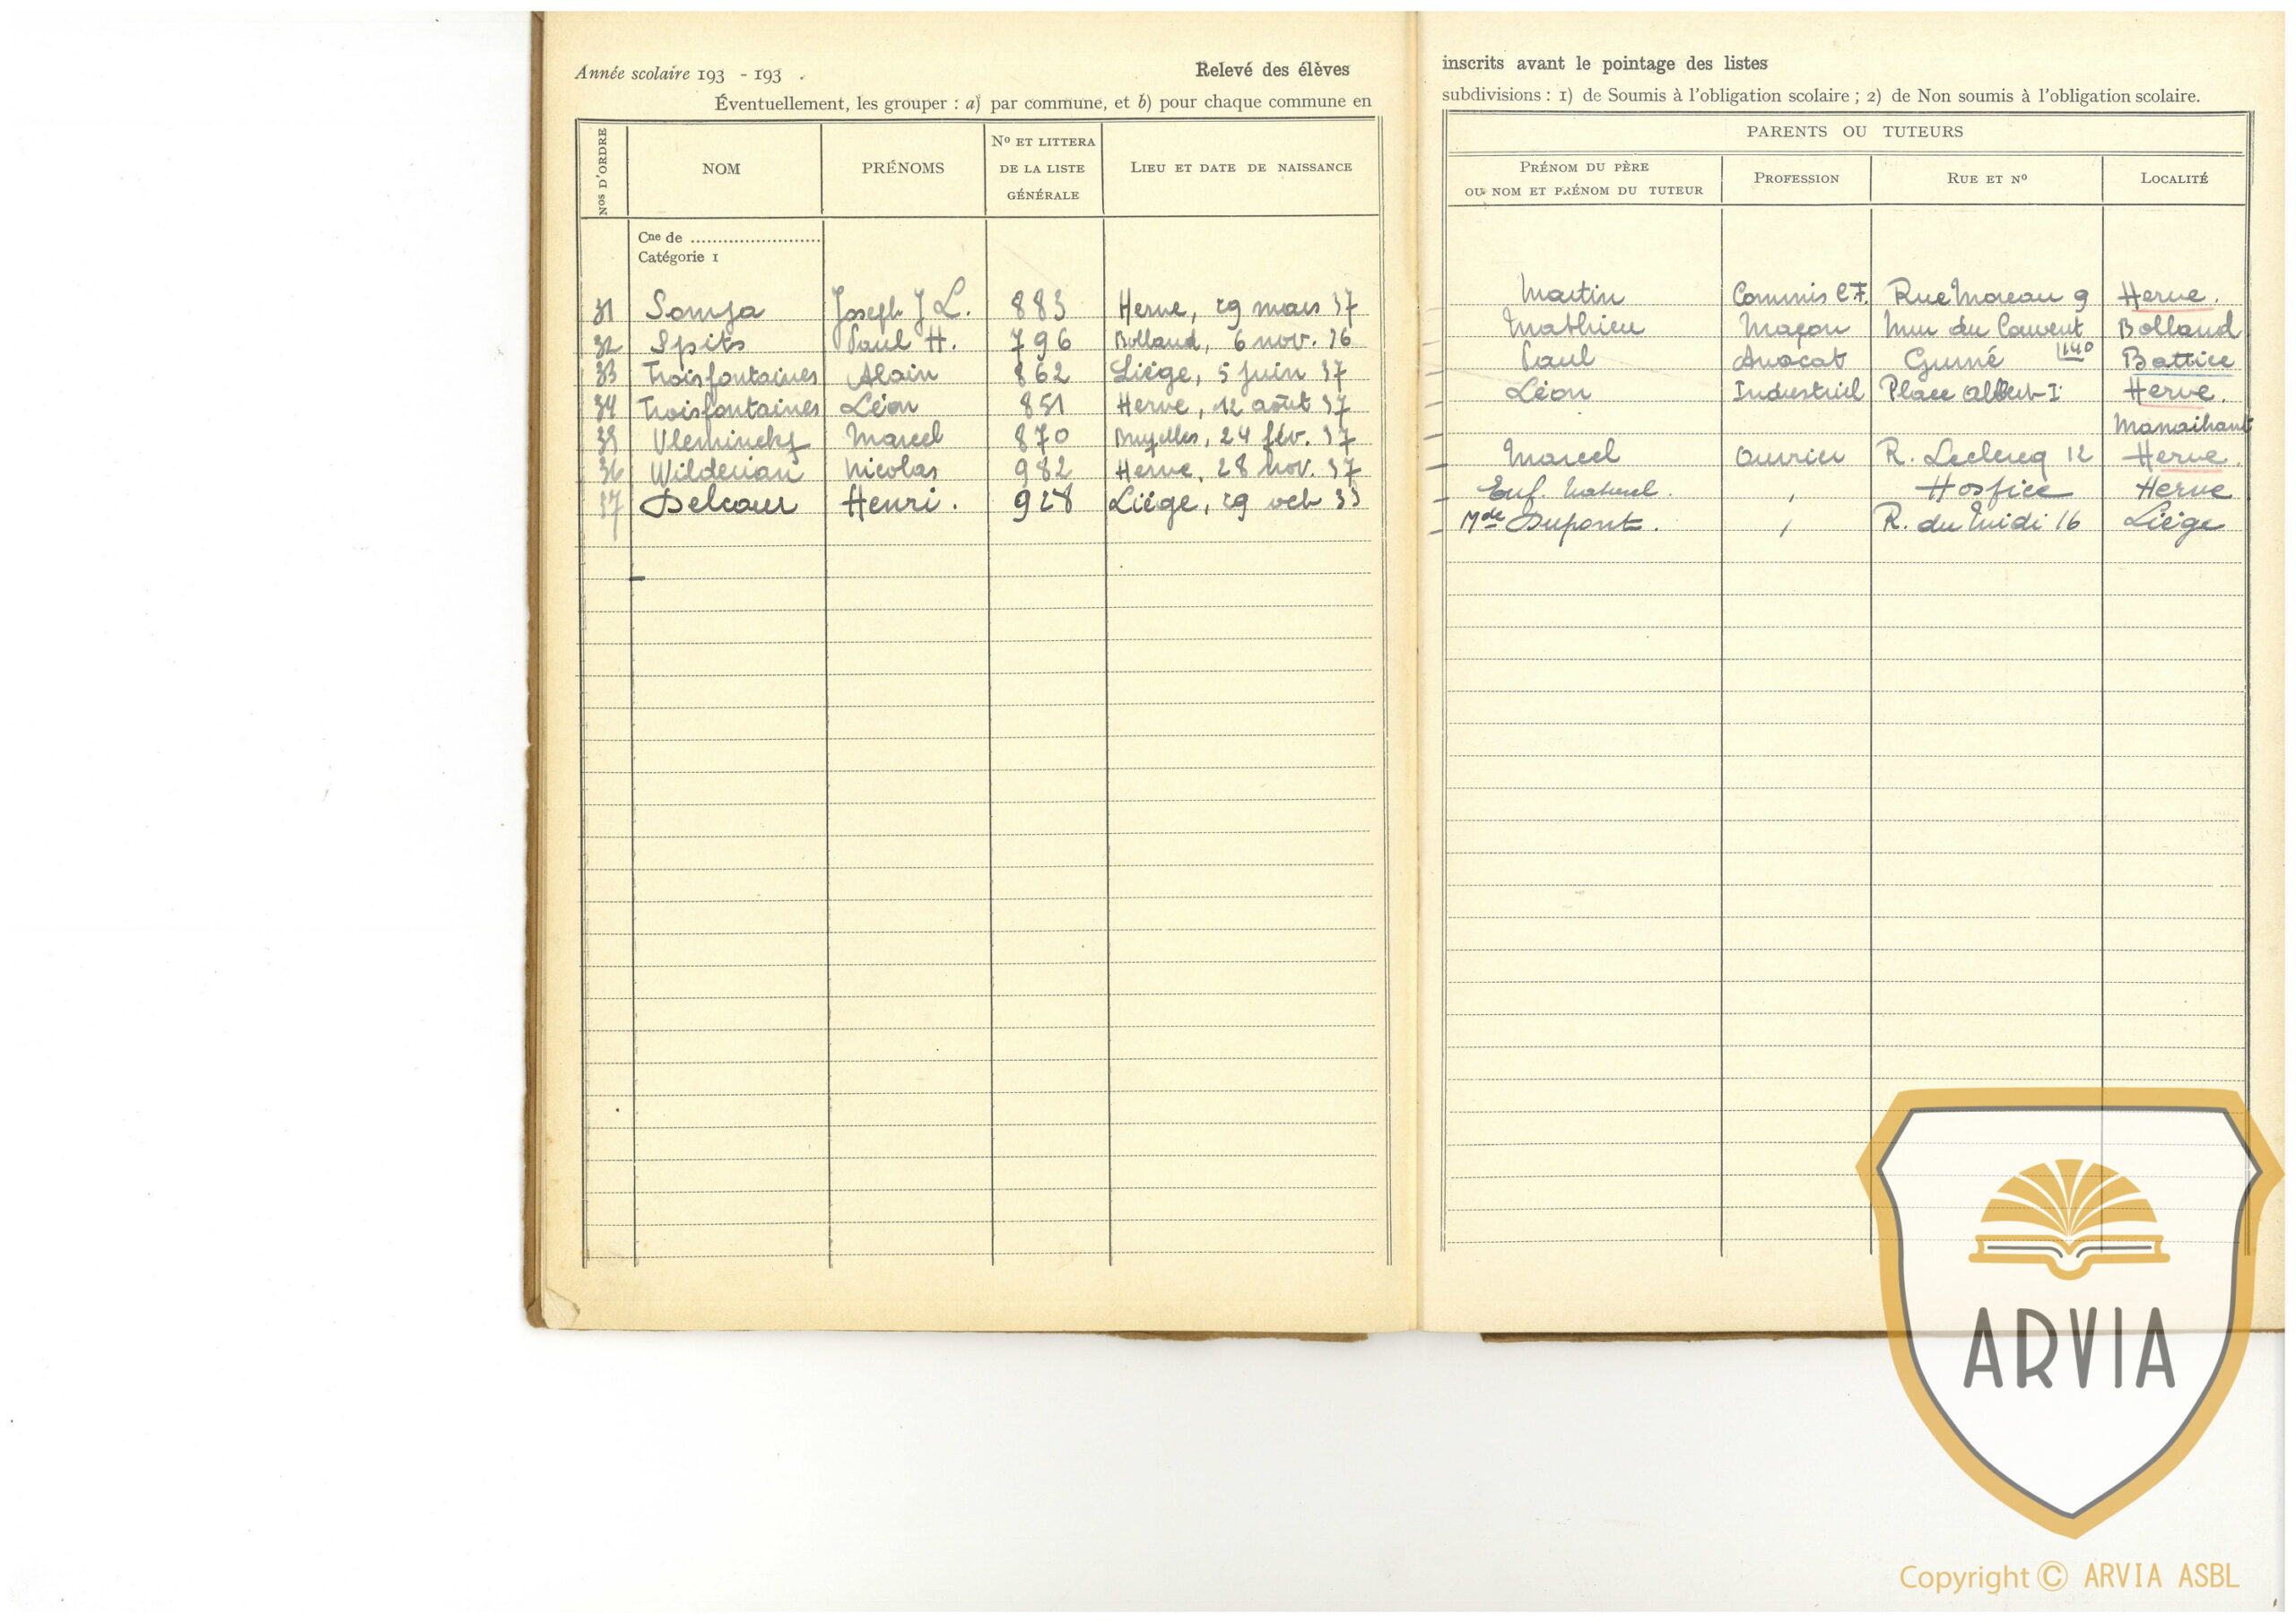 Année scolaire 193 - 193 .
Relevé des élèves
Éventuellement, les grouper : a) par commune, et b) pour chaque commune en
Nos D'ORDRE
NOM
PRÉNOMS
No ET LITTERA
DE LA LISTE
GÉNÉRALE
LIEU ET DATE DE NAISSANCE
Cne de ........................
Catégorie 1
31 Somja Joseph J L. 883 Herve, 29 mars 37
32 Spits Paul H. 796 Bolland, 6 nov. 36
33 Troisfontaines Alain 862 Liége, 5 juin 37
34 Troisfontaines Léon 851 Herve, 12 août 37
35 Vleminckx Marcel 870 Bruxelles, 24 fév. 37
36 Wilderian Nicolas 982 Herve, 28 nov. 37
37 Delcour Henri. 928 Liége, 29 oct 33
inscrits avant le pointage des listes
subdivisions : 1) de Soumis à l'obligation scolaire ; 2) de Non soumis à l'obligation scolaire.
PARENTS OU TUTEURS
PRÉNOM DU PÈRE
OU NOM ET PRÉNOM DU TUTEUR
PROFESSION
RUE ET No
LOCALITÉ
Martin Commis C.F. Rue Moreau 9 Herve.
Mathieu Maçon Mur du Couvent Bolland
Paul Avocat 140 Battice
Léon Industriel Place Albert I Herve.
Manaihant
Marcel Ouvrier R. Leclercq 12 Herve.
Enf. Naturel. Hospice Herve
Mde Dupont. R. du Midi 16 Liége
ARVIA
Copyright © ARVIA ASBL